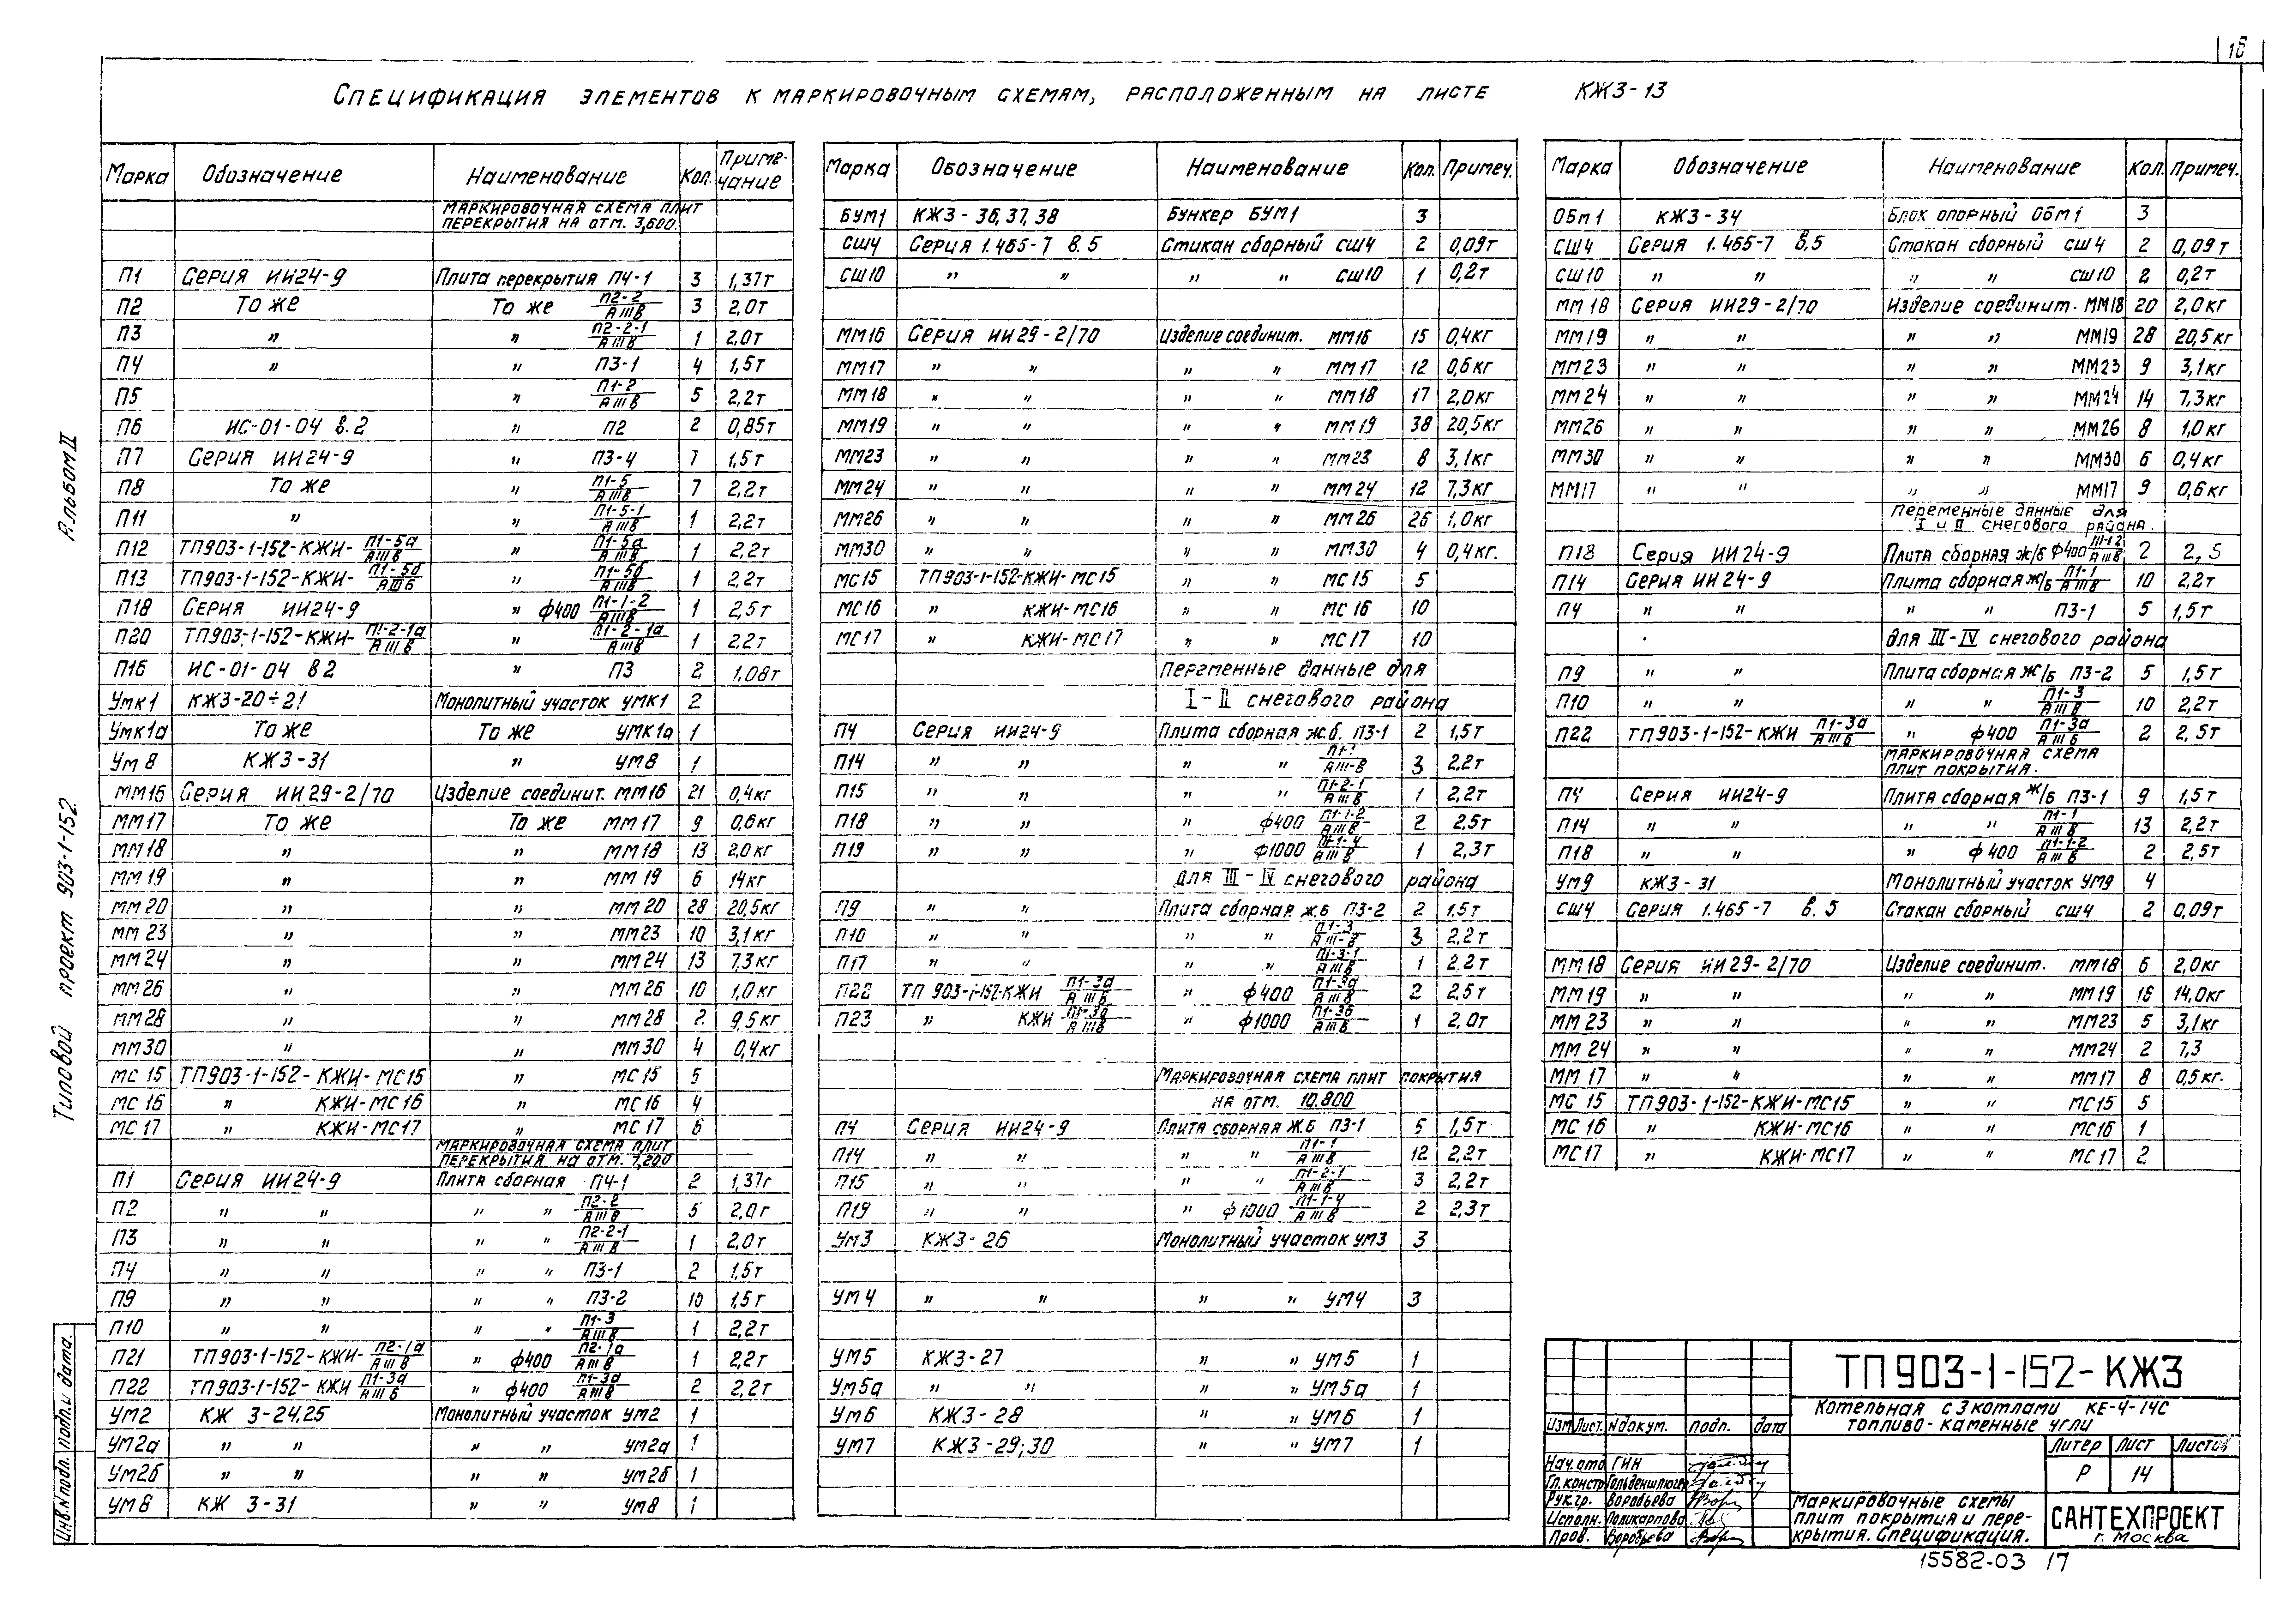 16
Спецификация элементов к маркировочным схемам, расположенным на листе КЖ3-13
Марка Обозначение Наименование Кол. Приме-чание
Маркировочная схема плит
перекрытия на отм. 3,600.
П1 Серия ИИ24-9 Плита перекрытия П4-1 3 1,37т
П2 То же То же П2-2/АIIIв 3 2,0т
П3 " " П2-2-1/АIIIв 1 2,0т
П4 " " П3-1 4 1,5т
П5 " П1-2/АIIIв 5 2,2т
П6 ИС-01-04 в.2 " П2 2 0,85т
П7 Серия ИИ24-9 " П3-4 7 1,5т
П8 То же " П1-5/АIIIв 7 2,2т
П11 " " П1-5-1/АIIIв 1 2,2т
П12 ТП903-1-152-КЖИ-П1-5а/АIIIв " П1-5а/АIIIв 1 2,2т
П13 ТП903-1-152-КЖИ-П1-5б/АIIIб " П1-5б/АIIIв 1 2,2т
П18 Серия ИИ24-9 " ф400 П1-1-2/АIIIв 1 2,5т
П20 ТП903-1-152-КЖИ-П1-2-1а/АIIIв " П1-2-1а/АIIIв 1 2,2т
П16 ИС-01-04 в2 " П3 2 1,08т
Умк1 КЖ3-20÷21 Монолитный участок умк1 2
Умк1а То же То же умк1а 1
Ум8 КЖ3-31 " ум8 1
ММ16 Серия ИИ29-2/70 Изделие соединит. ММ16 21 0,4кг
ММ17 То же То же ММ17 9 0,6кг
ММ18 " " ММ18 13 2,0кг
ММ19 " " ММ19 6 14кг
ММ20 " " ММ20 28 20,5кг
ММ23 " " ММ23 10 3,1кг
ММ24 " " ММ24 13 7,3кг
ММ26 " " ММ26 10 1,0кг
ММ28 " " ММ28 2 9,5кг
ММ30 " " ММ30 4 0,4кг
МС15 ТП903-1-152-КЖИ-МС15 " МС15 5
МС16 " КЖИ-МС16 " МС16 4
МС17 " КЖИ-МС17 " МС17 6
Маркировочная схема плит
перекрытия на отм. 7,200
П1 Серия ИИ24-9 Плита сборная П4-1 2 1,37г
П2 " " " " П2-2/АIIIв 5 2,0г
П3 " " " " П2-2-1/АIIIв 1 2,0т
П4 " " " " П3-1 2 1,5т
П9 " " " " П3-2 10 1,5т
П10 " " " " П1-3/АIIIв 1 2,2т
П21 ТП903-1-152-КЖИ-П2-1а/АIIIв " ф400 П2-1а/АIIIв 1 2,2т
П22 ТП903-1-152-КЖИ П1-3а/АIIIб " ф400 П1-3а/АIIIв 2 2,2т
УМ2 КЖ 3-24,25 Монолитный участок ум2 1
УМ2а " " " " ум2а 1
УМ2б " " " " ум2б 1
УМ8 КЖ 3-31 " " ум8 1
Марка Обозначение Наименование Кол. Примеч.
БУМ1 КЖ3-36,37,38 Бункер БУМ1 3
СШ4 Серия 1.465-7 в.5 Стикан сборный СШ4 2 0,09т
СШ10 " " " " СШ10 1 0,2т
ММ16 Серия ИИ29-2/70 Изделие соединит. ММ16 15 0,4кг
ММ17 " " " " ММ17 12 0,6кг
ММ18 " " " " ММ18 17 2,0кг
ММ19 " " " " ММ19 38 20,5кг
ММ23 " " " " ММ23 8 3,1кг
ММ24 " " " " ММ24 12 7,3кг
ММ26 " " " " ММ26 26 1,0кг
ММ30 " " " " ММ30 4 0,4кг.
МС15 ТП903-1-152-КЖИ-МС15 " " МС15 5
МС16 " КЖИ-МС16 " " МС16 10
МС17 " КЖИ-МС17 " " МС17 10
Переменные данные для
I-II снегового района
П4 Серия ИИ24-9 Плита сборная ж.б. П3-1 2 1,5т
П14 " " " " П1-1/АIII-в 3 2,2т
П15 " " " " П1-2-1/АIIIв 1 2,2т
П18 " " " ф400 П1-1-2/АIIIв 2 2,5т
П19 " " " ф1000 П1-1-4/АIIIв 1 2,3т
Для III-IV снегового района
П9 " " Плита сборная ж.б П3-2 2 1,5т
П10 " " " " П1-3/АIII-в 3 2,2т
П17 " " " " П1-3-1/АIIIв 1 2,2т
П22 ТП 903-1-152-КЖИ П1-3а/АIIIб " ф400 П1-3а/АIIIв 2 2,5т
П23 " КЖИ П1-3б/АIIIв " ф1000 П1-3б/АIIIв 1 2,0т
Маркировочная схема плит покрытия
на отм. 10,800
П4 Серия ИИ24-9 Плита сборная ж.б П3-1 5 1,5т
П14 " " " " П1-1/АIIIв 12 2,2т
П15 " " " " П1-2-1/АIIIв 3 2,2т
П19 " " " ф1000 П1-1-4/АIIIв 2 2,3т
УМ3 КЖ3-26 Монолитный участок ум3 3
УМ4 " " " " УМ4 3
УМ5 КЖ3-27 " " УМ5 1
Ум5а " " " " УМ5а 1
Ум6 КЖ3-28 " " УМ6 1
УМ7 КЖ3-29;30 " " УМ7 1
Марка Обозначение Наименование Кол. Примеч.
ОБм1 КЖ3-34 Блок опорный ОБм1 3
СШ4 Серия 1.465-7 в.5 Стакан сборный СШ4 2 0,09т
СШ10 " " " " СШ10 2 0,2т
ММ18 Серия ИИ29-2/70 Изделие соединит. ММ18 20 2,0кг
ММ19 " " " " ММ19 28 20,5кг
ММ23 " " " " ММ23 9 3,1кг
ММ24 " " " " ММ24 14 7,3кг
ММ26 " " " " ММ26 8 1,0кг
ММ30 " " " " ММ30 6 0,4кг
ММ17 " " " " ММ17 9 0,6кг
Переменные данные для
I и II снегового района.
П18 Серия ИИ24-9 Плита сборная ж/б ф400 2 2,5
П14 Серия ИИ24-9 Плита сборная ж/б П1-1/АIIIв 10 2,2т
П4 " " " " П3-1 5 1,5т
Для III-IV снегового района
П9 " " Плита сборная ж/б П3-2 5 1,5т
П10 " " " " П1-3/АIIIв 10 2,2т
П22 ТП903-1-152-КЖИ П1-3а/АIIIб " ф400 П1-3а/АIIIб 2 2,5т
Маркировочная схема
плит покрытия.
П4 Серия ИИ24-9 Плита сборная ж/б П3-1 9 1,5т
П14 " " " " П1-1/АIIIв 13 2,2т
П18 " " " ф400 П1-1-2/АIIIв 2 2,5т
Ум9 КЖ3-31 Монолитный участок УМ9 4
СШ4 Серия 1.465-7 в.5 Стакан сборный сш4 2 0,09т
ММ18 Серия ИИ29-2/70 Изделие соединит. ММ18 6 2,0кг
ММ19 " " " " ММ19 16 14,0кг
ММ23 " " " " ММ23 5 3,1кг
ММ24 " " " " ММ24 2 7,3
ММ17 " " " " ММ17 8 0,5кг.
МС15 ТП903-1-152-КЖИ-МС15 " " МС15 5
МС16 " КЖИ-МС16 " " МС16 1
МС17 " КЖИ-МС17 " " МС17 2
Альбом II
Типовой проект 903-1-152
Инв.Nподл. Подп.и дата.
ТП903-1-152-КЖ3
Котельная с 3 котлами КЕ-4-14С
топливо-каменные угли
Изм Лист. N докум. подп. дата
Литер Лист Листов
Р 14
Нач.отд ГИН
Гл.констр Гольденшлюгер
Рук.гр. Воробьева
Исполн. Поликарпова
Пров. Воробьева
Маркировочные схемы
плит покрытия и пере-
крытия. Спецификация.
САНТЕХПРОЕКТ
г. Москва
15582-03 17